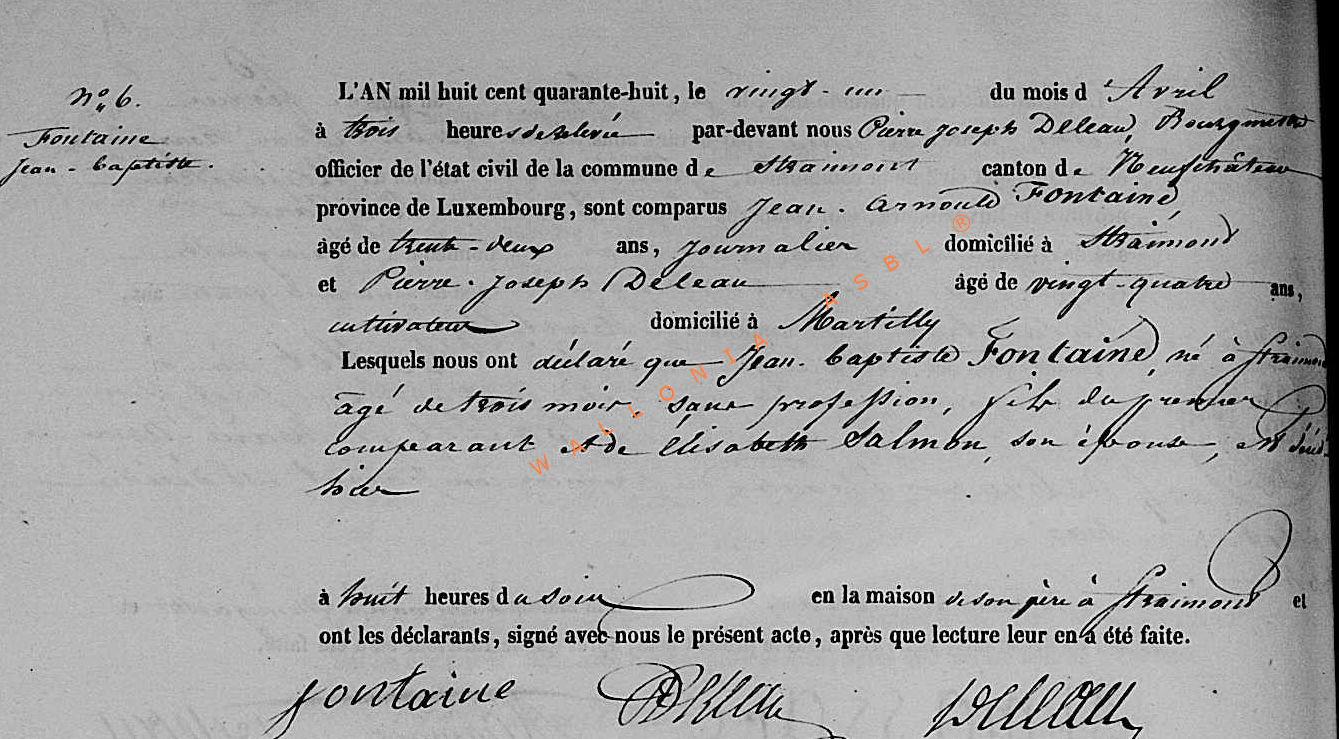 N° 6.
Fontaine
Jean-baptiste.
L'AN mil huit cent quarante-huit, le vingt-un du mois d'Avril
à trois heures de relevée par-devant nous Pierre Joseph Deleau, Bourgmestre
officier de l'état civil de la commune de Straimont canton de Neufchâteau
province de Luxembourg, sont comparus Jean-Arnould Fontaine
âgé de trente-deux ans, journalier domicilié à Straimont
et Pierre-Joseph Deleau âgé de vingt-quatre ans,
cultivateur domicilié à Martilly
Lesquels nous ont déclaré que Jean-baptiste Fontaine, né à Straimont
âgé de trois mois, sans profession, fils du premier
comparant et de Élisabeth Salmon, son épouse, est décédé
hier
à huit heures du soir en la maison de son père à Straimont et
ont les déclarants, signé avec nous le présent acte, après que lecture leur en a été faite.
Fontaine Deleau Deleau
WALLONIA ASBL ®